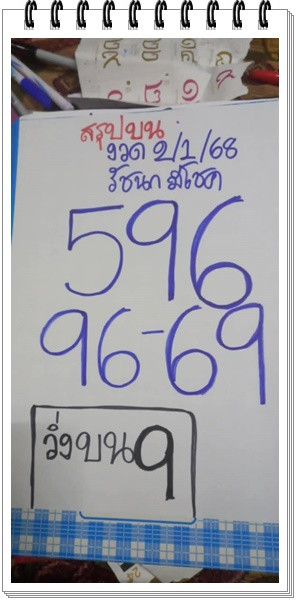 สรุปบน
งวด 2/1/68
รัชนก มีโชค
596
96-69
วิ่งบน 9